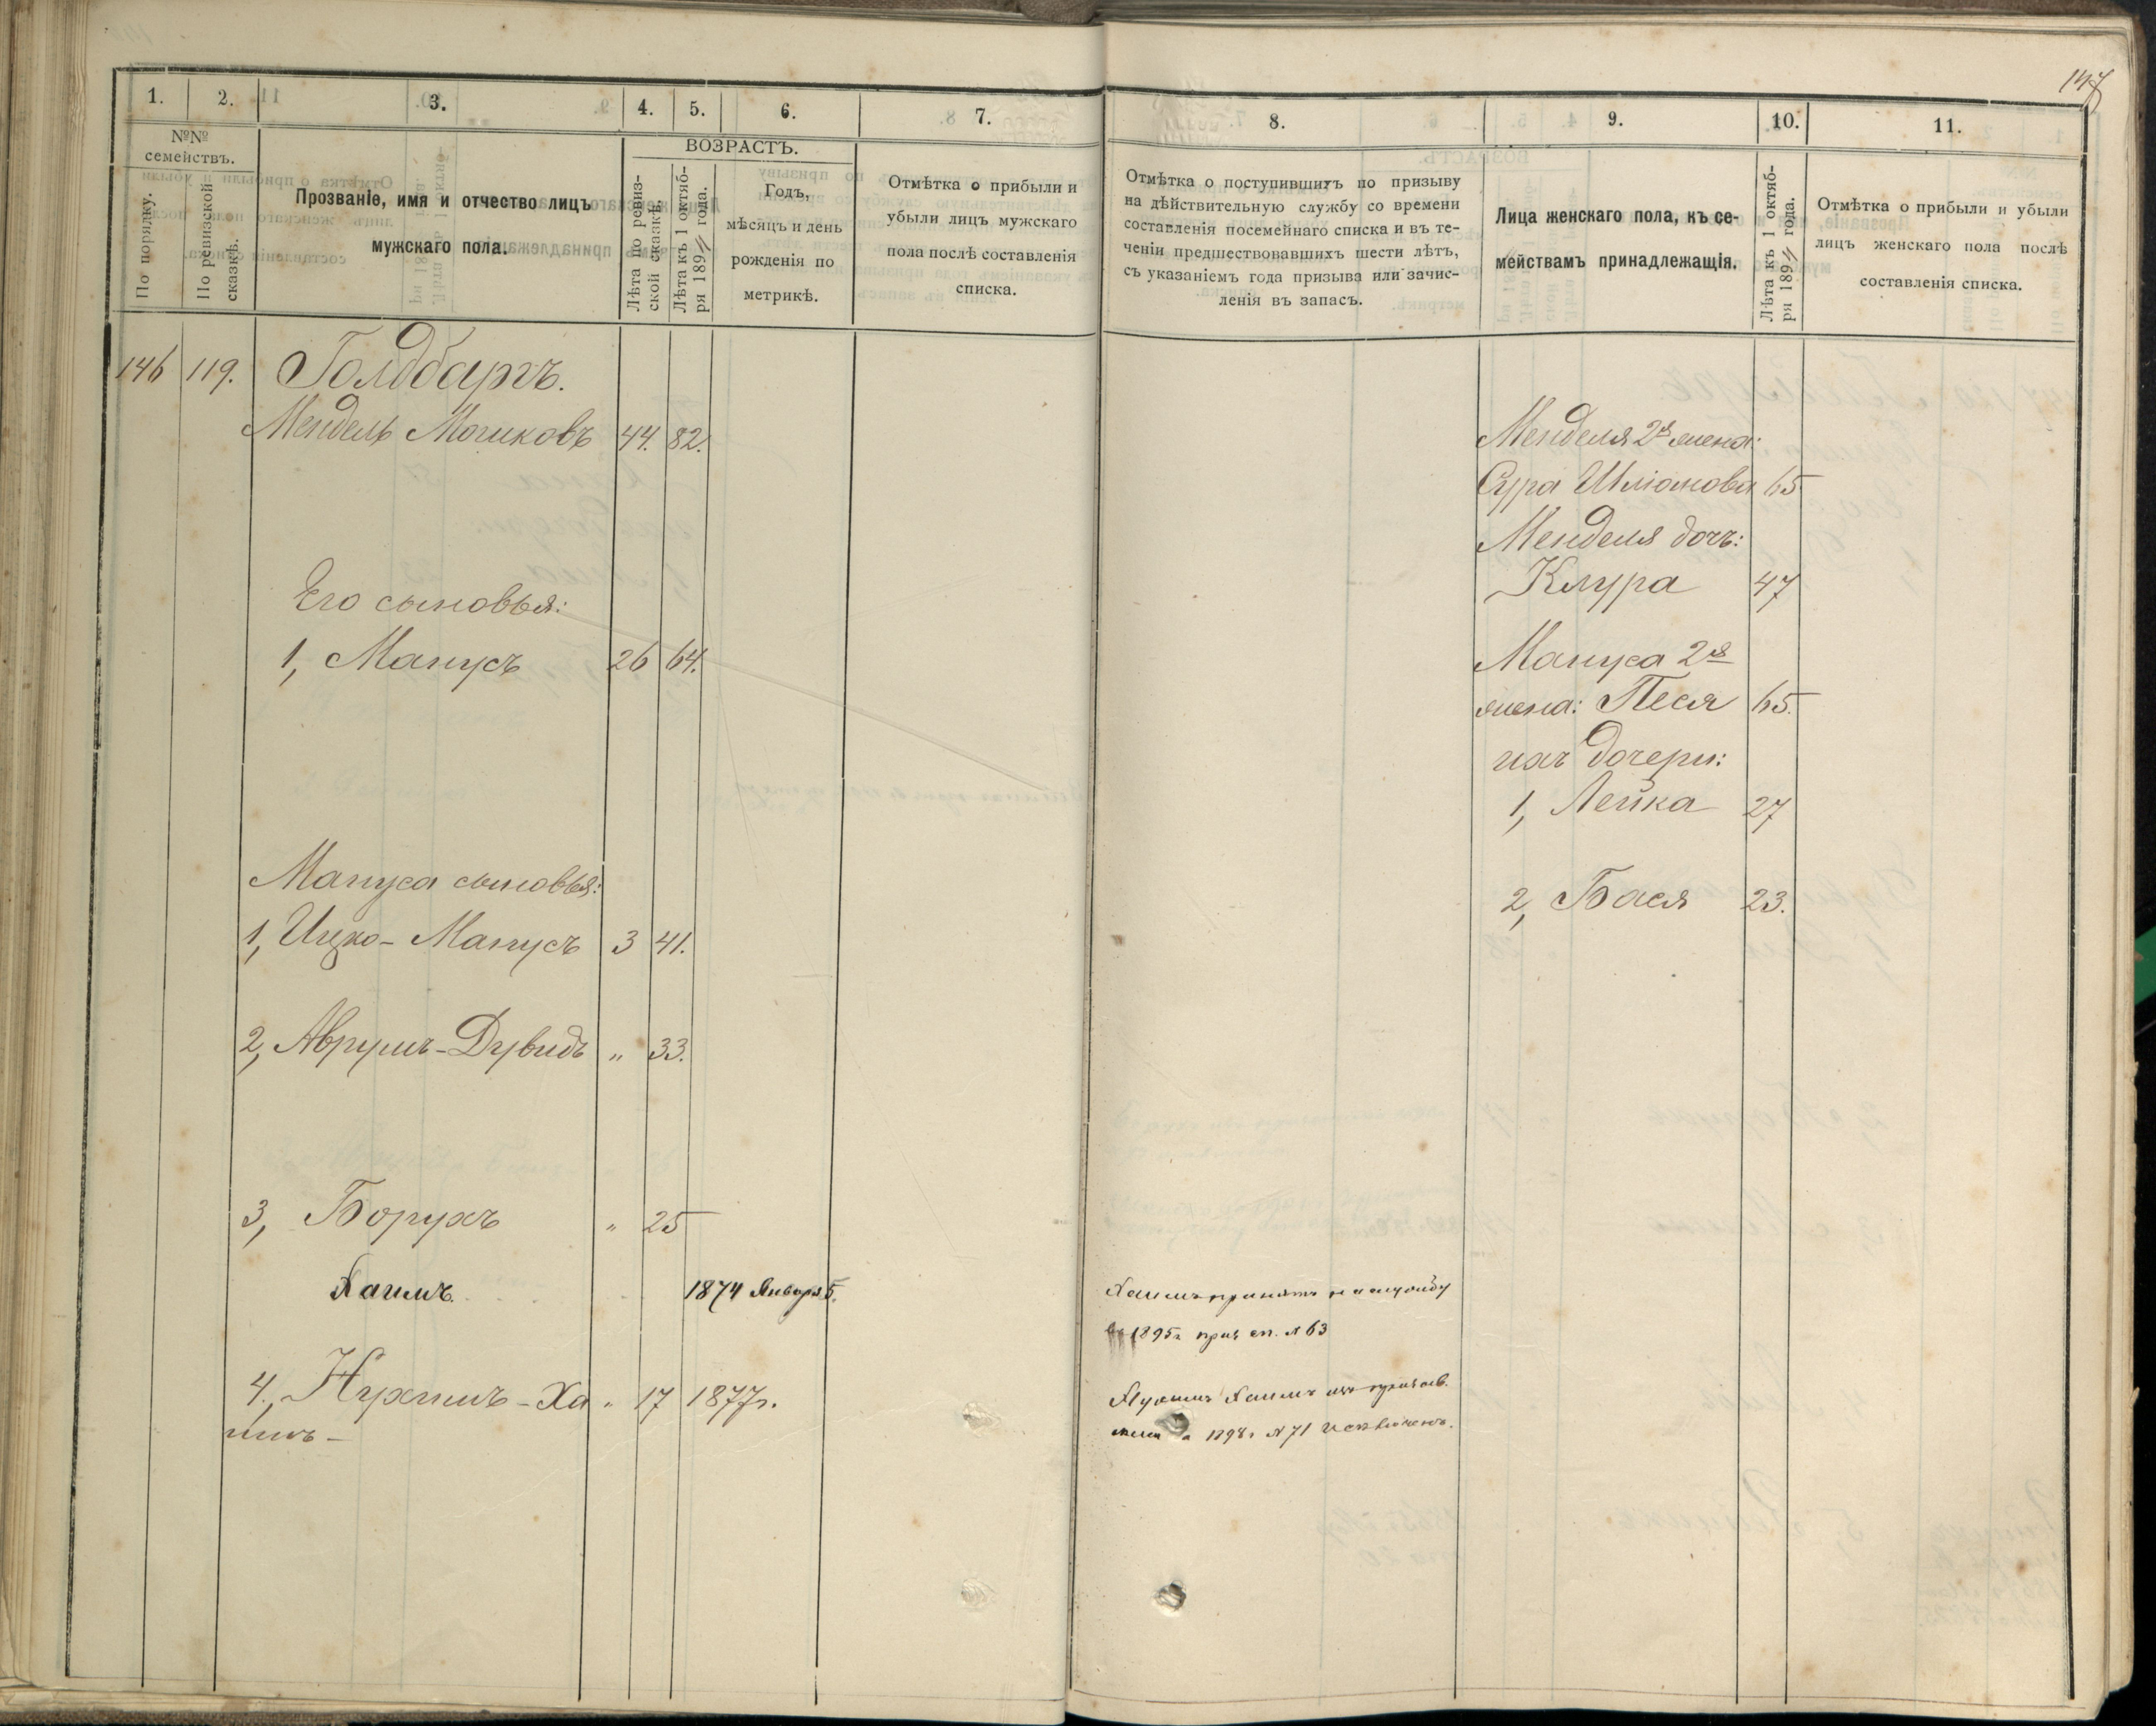 147
1. 2. 3. 4. 5. 6. 7. 8. 9. 10. 11.
№№ семействъ.
По порядку.
По ревизской сказкѣ.
Прозваніе, имя и отчество лицъ
мужскаго пола.
ВОЗРАСТЪ.
Лѣта по ревиз-
ской сказкѣ.
Лѣта къ 1 октяб-
ря 1894 года.
Годъ,
мѣсяцъ и день
рожденія по
метрикѣ.
Отмѣтка о прибыли и
убыли лицъ мужскаго
пола послѣ составленія
списка.
Отмѣтка о поступившихъ по призыву
на дѣйствительную службу со времени
составленія посемейнаго списка и въ те-
ченіи предшествовавшихъ шести лѣтъ,
съ указаніемъ года призыва или зачис-
ленія въ запасъ.
Лица женскаго пола, къ се-
мействамъ принадлежащія.
Лѣта къ 1 октяб-
ря 1894 года.
Отмѣтка о прибыли и убыли
лицъ женскаго пола послѣ
составленія списка.
146 119. Голдбаргъ.
Мендель Мошковъ 44. 82.
Его сыновья:
1, Манусъ 26 64.
Мануса сыновья:
1, Ицко-Манусъ 3 41.
2, Аврумъ-Дувидъ „ 33.
3, Борухъ „ 25
Хаимъ. 1874 Января 5.
4, Нухимъ-Ха „ 17 1877г.
имъ-
Хаимъ принятъ на службу
въ 1895г приз сп. № 63
Нухимъ Хаимъ
1898г №71 исключенъ.
Менделя 2я жена:
Сура Шліомова 65
Менделя дочь:
Клура 47
Мануса 2я
жена: Песя 65.
ихъ дочери:
1, Лейка 27
2, Бася 23.